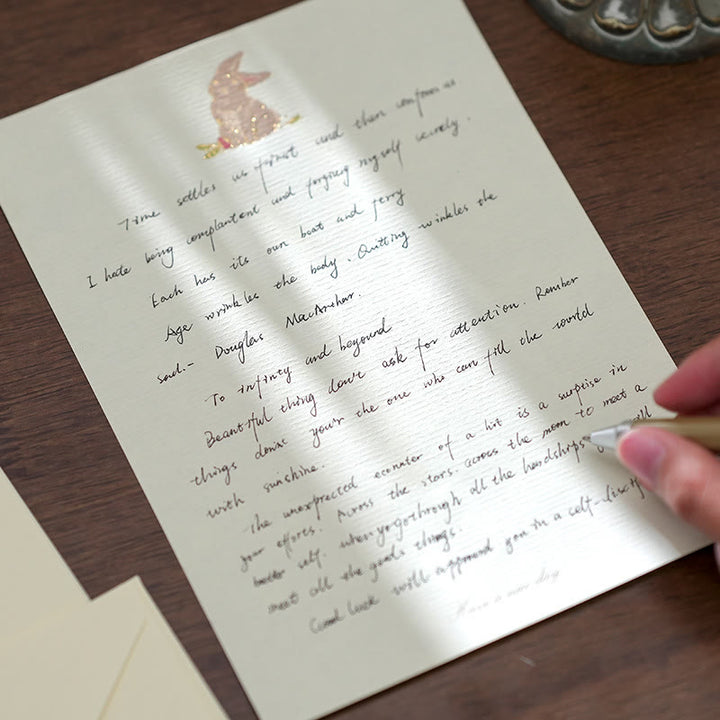 Time settles us first and then confuses us
I hate being complantent and forgiving myself secretly.
Each has its own boat and ferry
Age wrinkles the body. Quitting wrinkles the
soul.- Douglas MacArthur.
To infinity and beyound
Beautiful thing don't ask for attention. Rember
things donise your the one who can fill the world
with sunshine.
the unexpected econter of a hit is a surprise in
your efforts. Across the stars. across the moon to meet a
better self. when yo gothrough all the handships
meet all the goods things.
Good luck will approud you in a self-discipl
Have a nice day